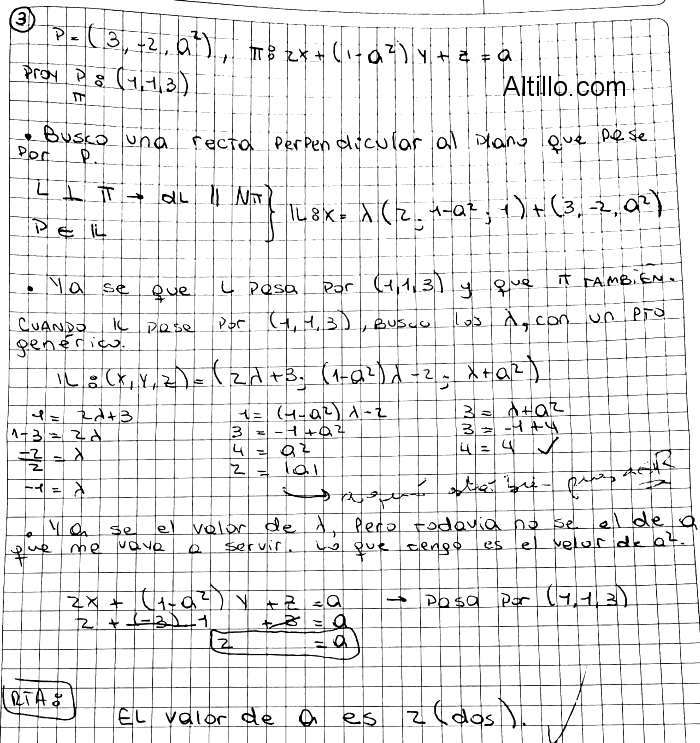 ③ P = (3, -2, a²), π: 2x + (1-a²) y + z = a
Proy P : (1,1,3)
π
Altillo.com
• Busco una recta perpendicular al plano que pase
por P.
L ⊥ π → dL // Nπ } IL: X = λ (2; 1-a²; 1) + (3, -2, a²)
P ∈ IL
• Ya se que L pasa por (1,1,3) y que π TAMBIÉN.
CUANDO IL pase por (1,1,3), busco los λ, con un pto
genérico.
IL: (x, y, z) = (2λ+3; (1-a²)λ-2; λ+a²)
1 = 2λ+3 1 = (1-a²) λ-2 3 = λ+a²
1-3 = 2λ 3 = -1+a² 3 = -1+4
-2/2 = λ 4 = a² 4 = 4 ✓
-1 = λ 2 = |a|
• Ya se el valor de λ, pero todavia no se el de a
que me vaya a servir. Lo que tengo es el valor de a².
2x + (1-a²) y + z = a → pasa por (1,1,3)
2 + (-3) 1 + 3 = a
2 = a
RTA:
EL valor de a es 2 (dos).